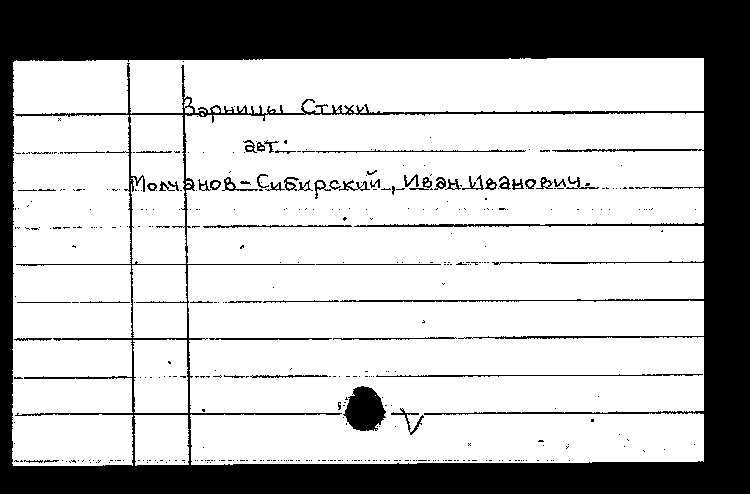 Зарницы Стихи
авт:
Молчанов-Сибирский, Иван Иванович.
V